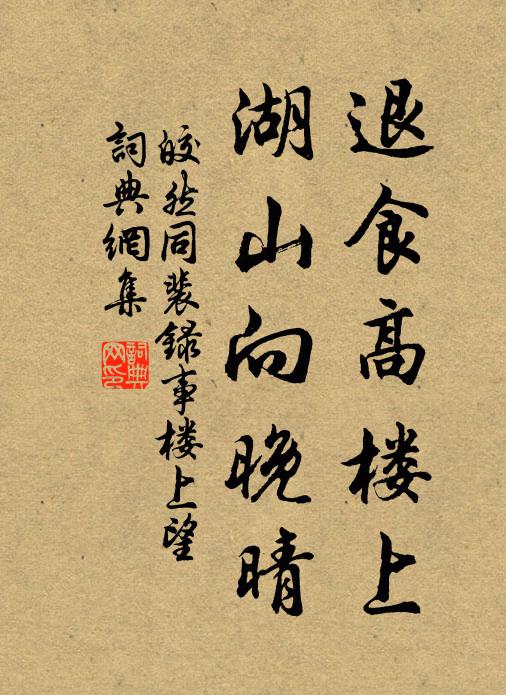 退食高楼上
湖山向晚晴
皎然同裴录事楼上望
詞典網集
詞典网印